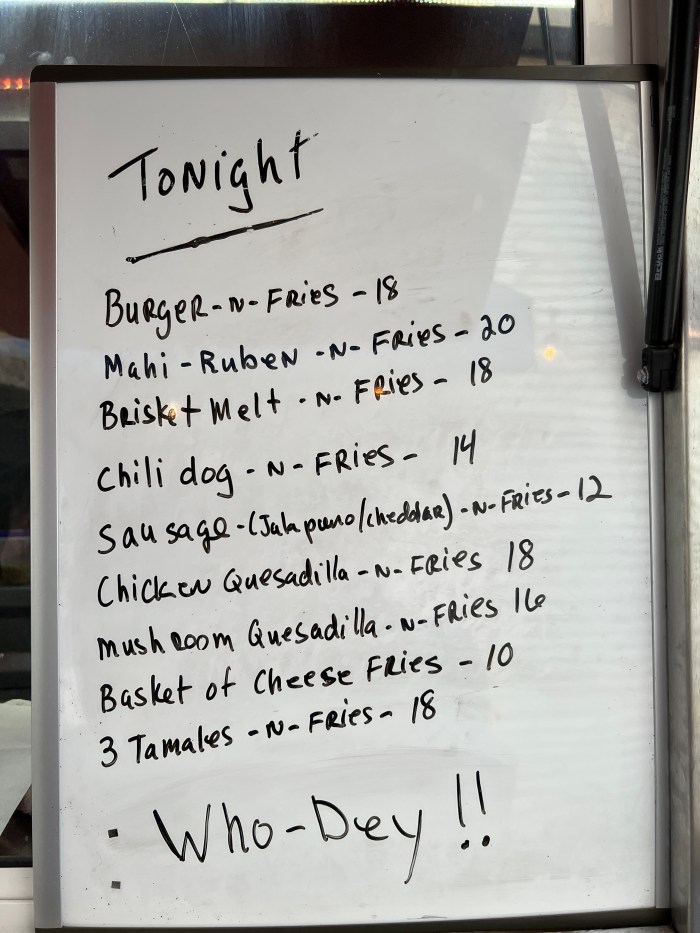 Tonight
Burger-N-Fries - 18
Mahi-Ruben -N- Fries - 20
Brisket Melt - N- Fries - 18
Chili dog - N - Fries - 14
Sausage-(Jalapuno/cheddar) -N-Fries-12
Chicken Quesadilla -N- Fries 18
Mushroom Quesadilla - N-Fries 16
Basket of Cheese Fries - 10
3 Tamales -N- Fries - 18
Who-Dey !!